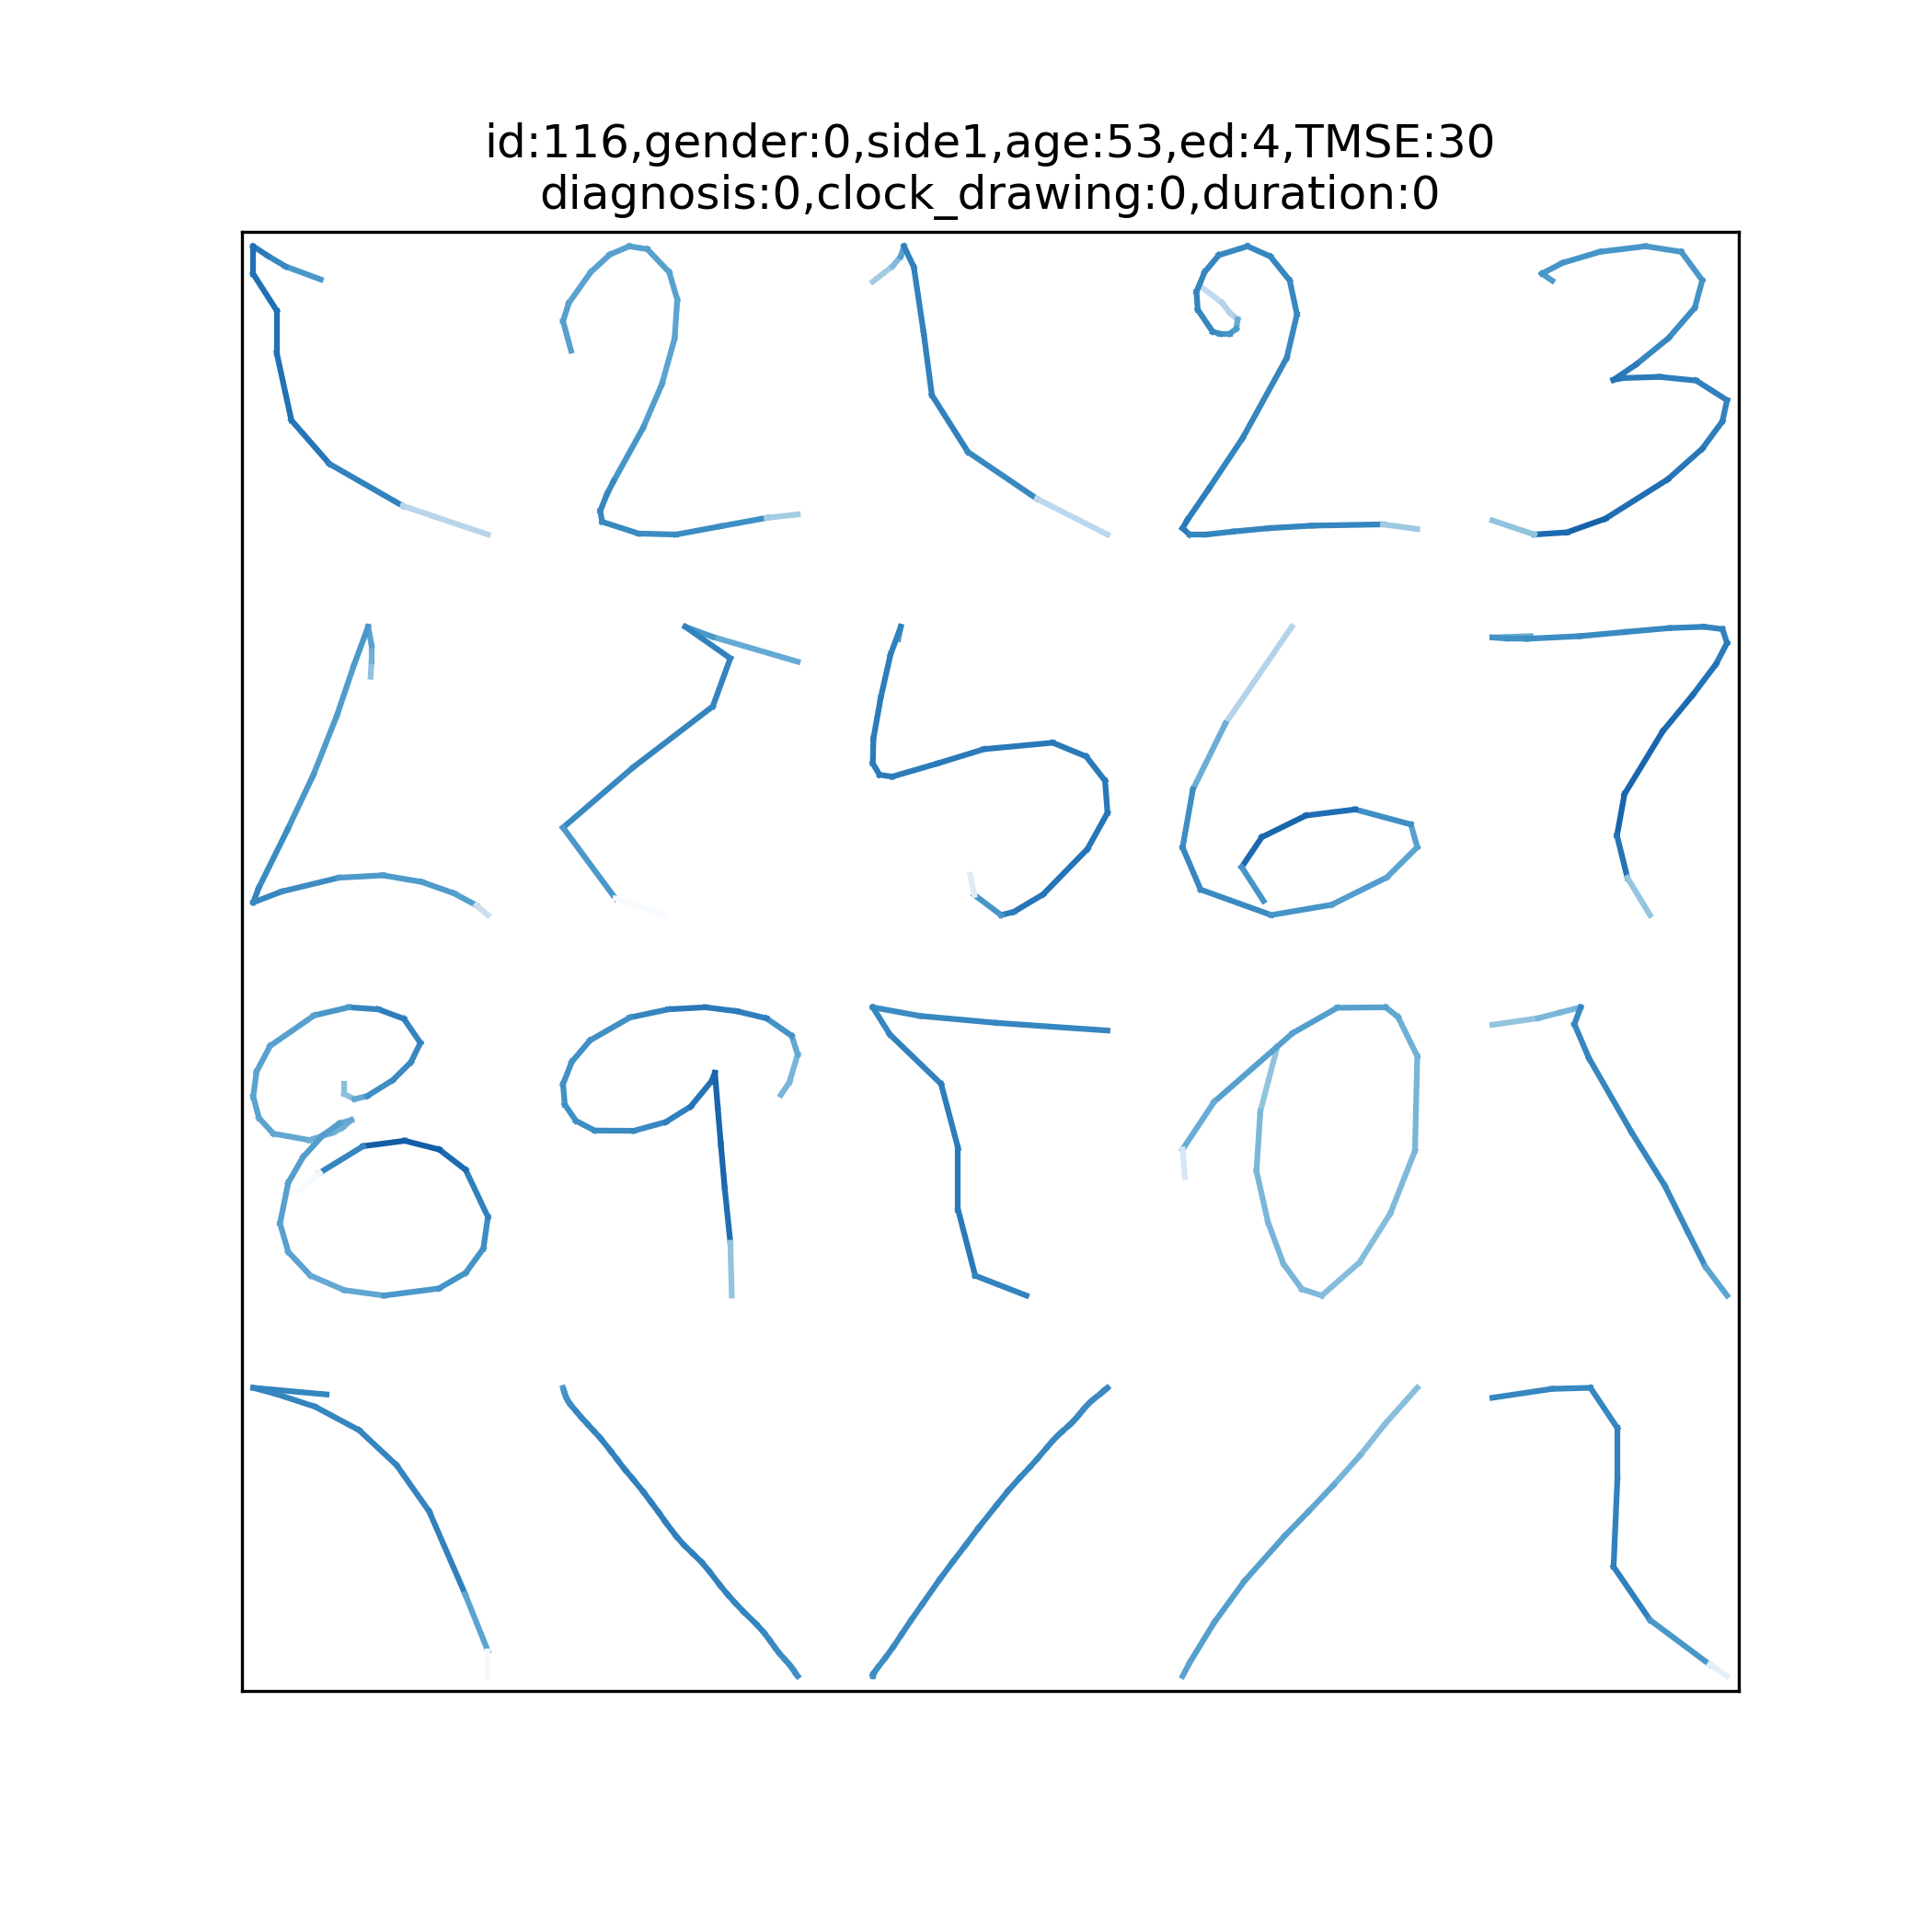 id:116,gender:0,side1,age:53,ed:4,TMSE:30
diagnosis:0,clock_drawing:0,duration:0